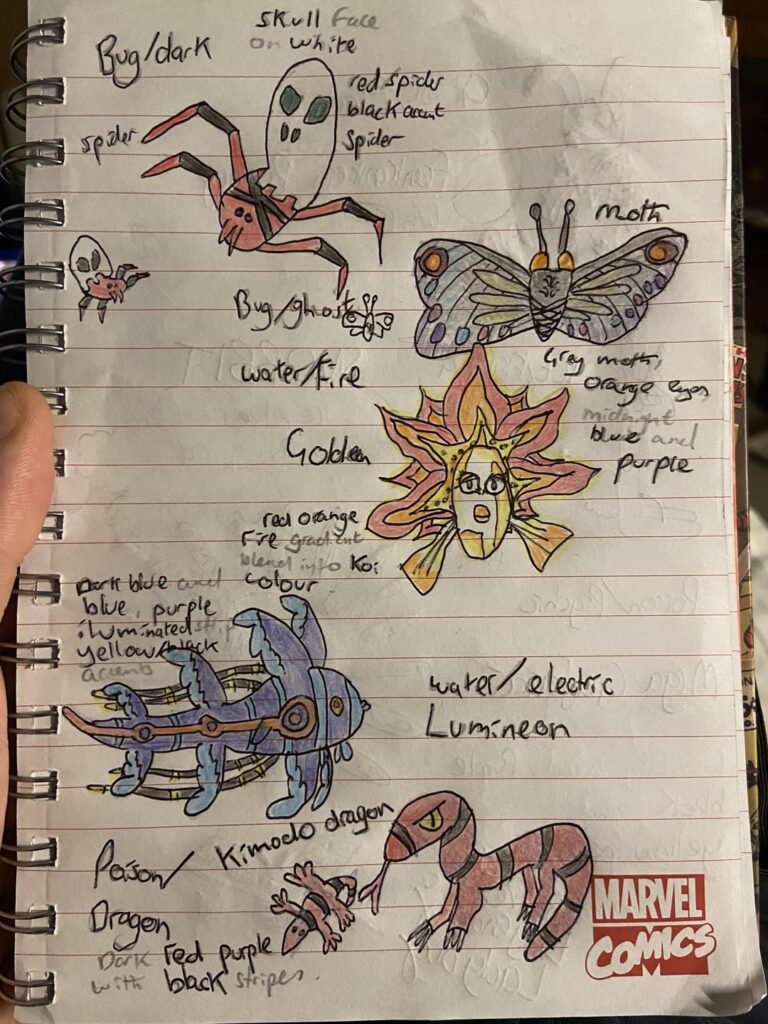 Bug/dark
skull face
on white
red spider
black accent
spider
spider
moth
Bug/ghost
Grey moth,
orange eyes,
midnight
blue and
purple
water/Fire
Golden
red orange
Fire gradient
blend into Koi
colour
Dark blue and
blue, purple
iluminated strip
yellow/black
accents
water/electric
Lumineon
Poison/
Dragon
Kimodo dragon
Dark red purple
with black stripes.
MARVEL
COMICS